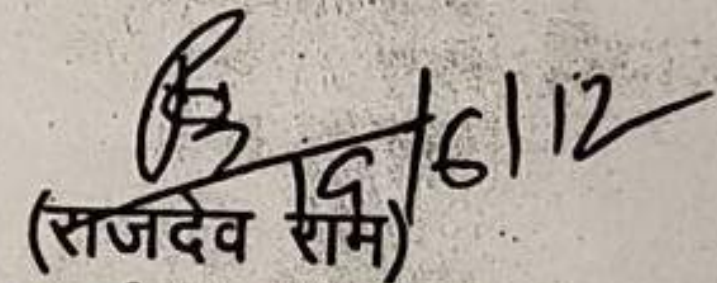 19/6/12
(सजदेव राम)